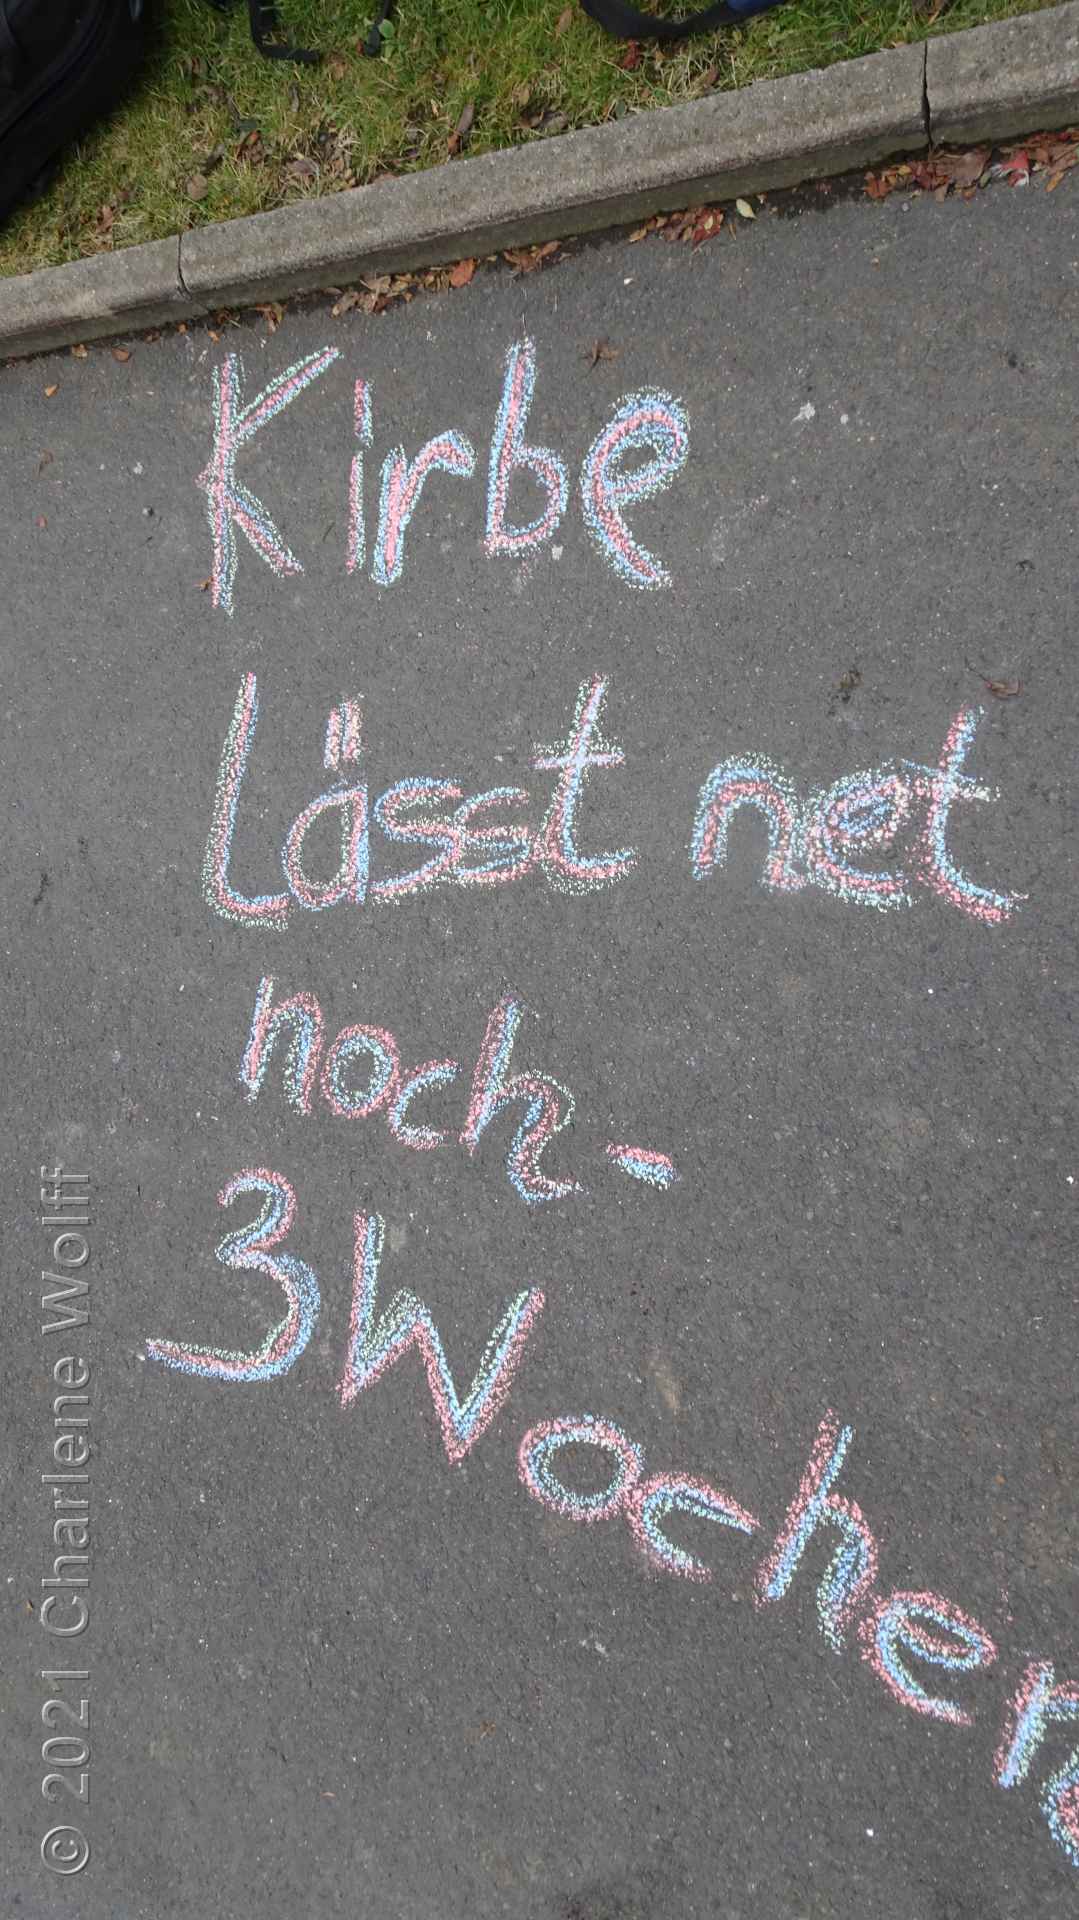 Kirbe
Lässt net
noch-
3 Wochen
© 2021 Charlene Wolff